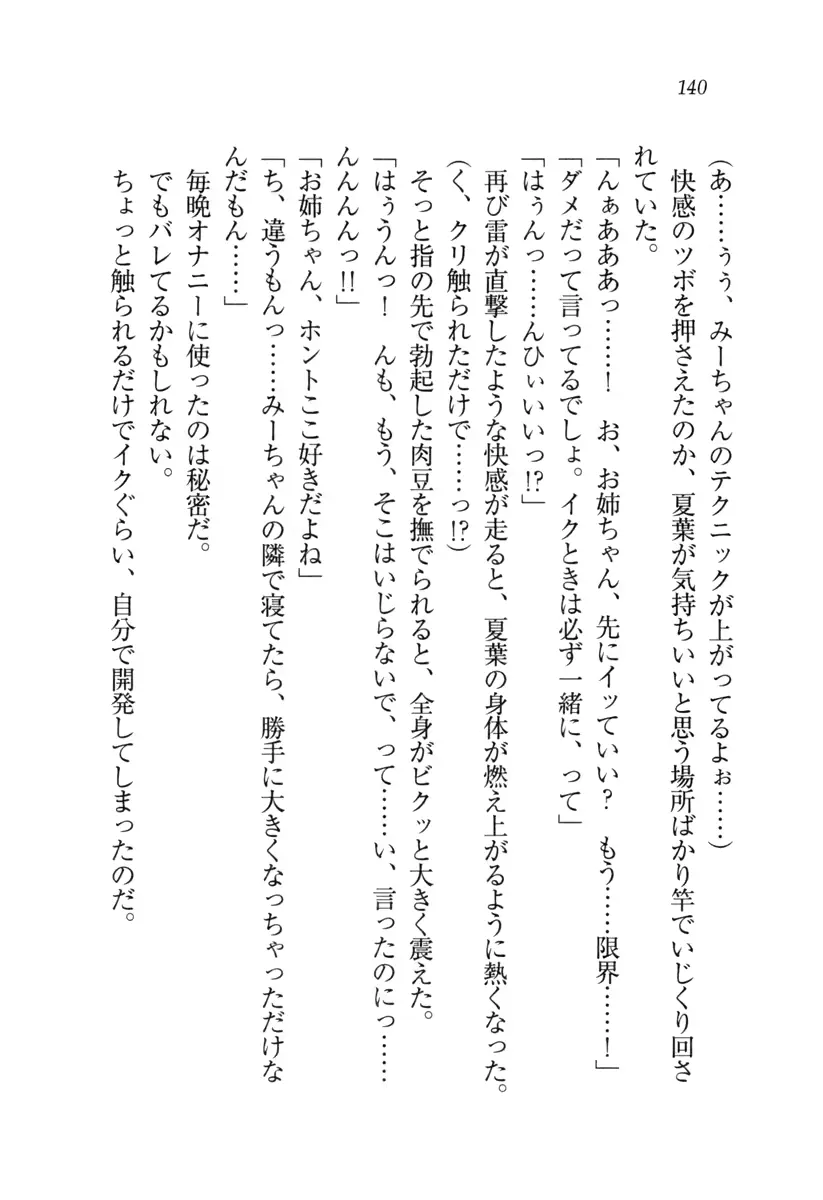 140
(あ……ぅぅ、みーちゃんのテクニックが上がってるよぉ……)
快感のツボを押さえたのか、夏葉が気持ちいいと思う場所ばかり竿でいじくり回さ
れていた。
「んぁあああっ……！　お、お姉ちゃん、先にイッていい？　もう……限界……！」
「ダメだって言ってるでしょ。イクときは必ず一緒に、って」
「はぅんっ……んひぃいいっ!?」
再び雷が直撃したような快感が走ると、夏葉の身体が燃え上がるように熱くなった。
(く、クリ触られただけで……っ!?)
そっと指の先で勃起した肉豆を撫でられると、全身がビクッと大きく震えた。
「はぅうんっ！　んも、もう、そこはいじらないで、って……い、言ったのにっ……
んんんんっ!!」
「お姉ちゃん、ホントここ好きだよね」
「ち、違うもんっ……みーちゃんの隣で寝てたら、勝手に大きくなっちゃっただけな
んだもん……」
毎晩オナニーに使ったのは秘密だ。
でもバレてるかもしれない。
ちょっと触られるだけでイクぐらい、自分で開発してしまったのだ。